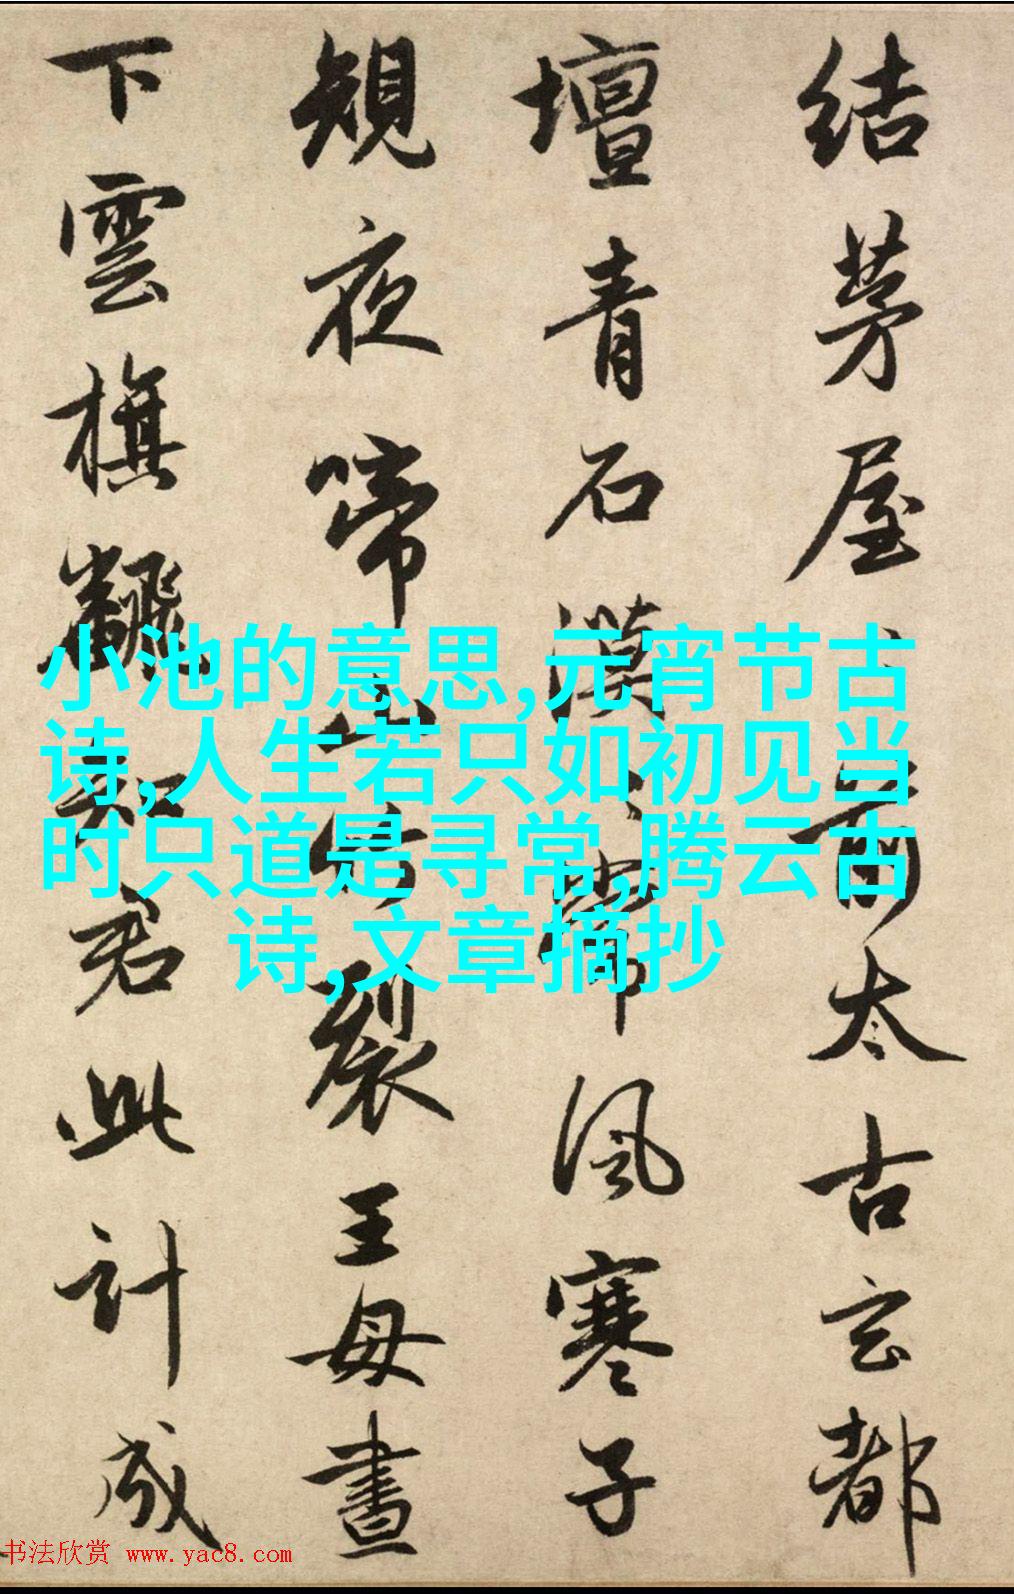 結茅屋〻前太古玄都
壇青石漠〻常風寒子
規夜啼山竹裂王母晝
下雲旗飜知君此計成
小池的意思,元宵节古
诗,人生若只如初见当
时只道是寻常,腾云古
诗,文章摘抄
书法欣赏 www.yac8.com